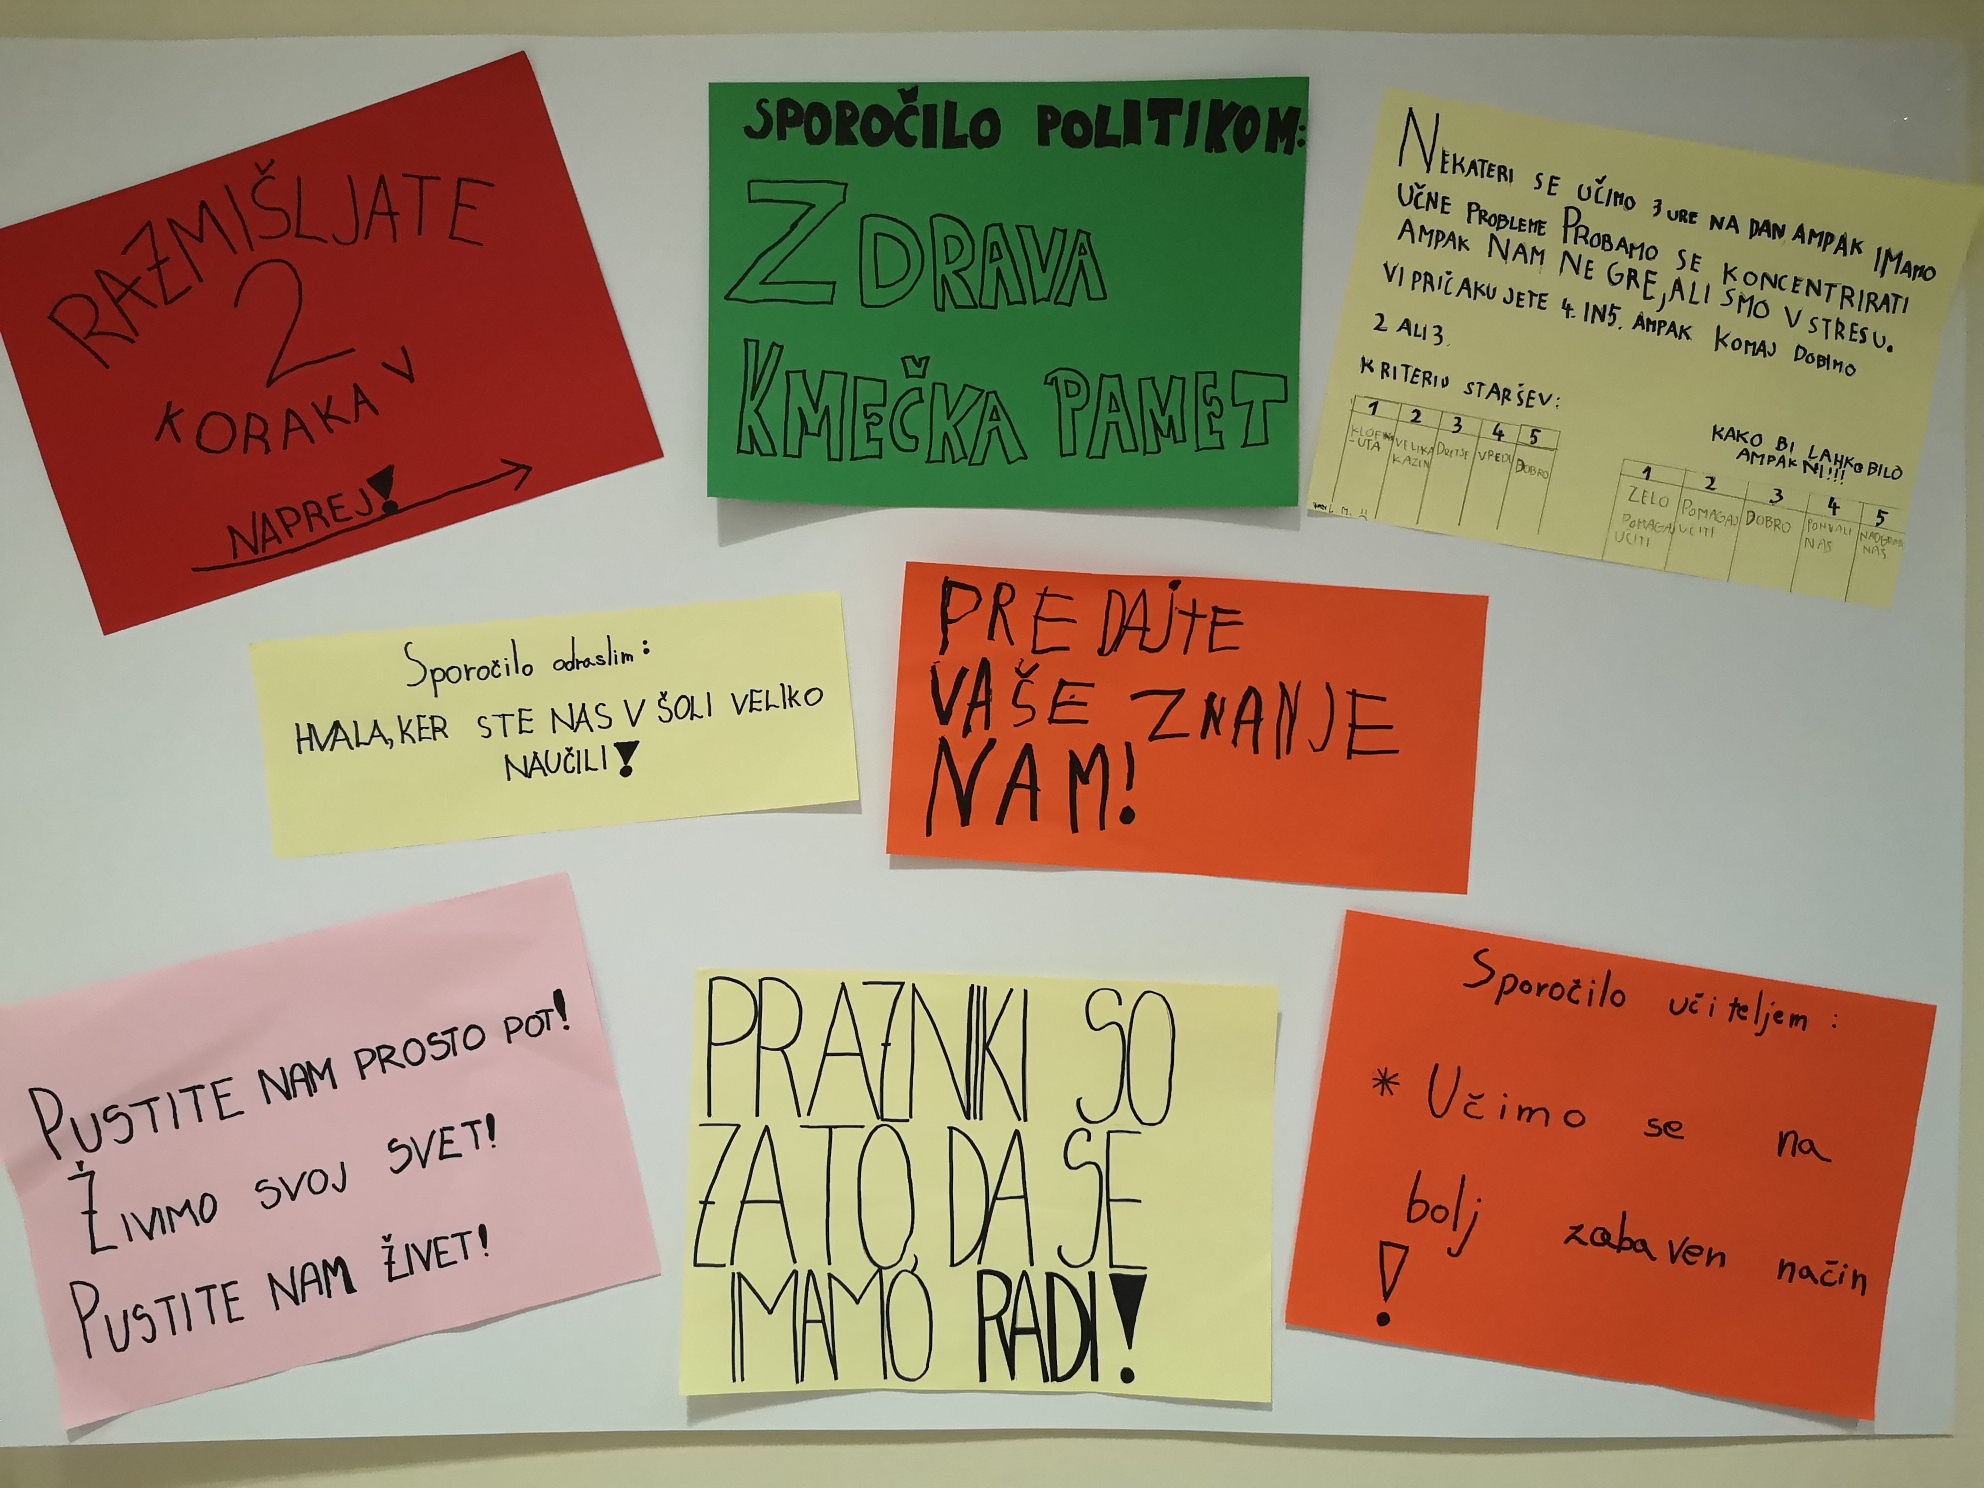 RAZMIŠLJATE
2
KORAKA V
NAPREJ!
SPOROČILO POLITIKOM:
ZDRAVA
KMEČKA PAMET
NEKATERI SE UČIMO 3 URE NA DAN AMPAK IMAMO
UČNE PROBLEME PROBAMO SE KONCENTRIRATI
AMPAK NAM NE GRE, ALI SMO V STRESU.
VI PRIČAKUJETE 4. IN 5. AMPAK KOMAJ DOBIMO
2 ALI 3.
KRITERIJ STARŠEV:
1 2 3 4 5
KLOFN VELIKA DRETJE VREDU DOBRO
-UTA KAZIN
KAKO BI LAHKO BILO
AMPAK NI!!!
1 2 3 4 5
ZELO POMAGAJ DOBRO POHVALI
POMAGAJ UČITI NAS NAS
UČITI
Sporočilo odraslim:
HVALA, KER STE NAS V ŠOLI VELIKO
NAUČILI!
PREDAJTE
VAŠE ZNANJE
NAM!
PUSTITE NAM PROSTO POT!
ŽIVIMO SVOJ SVET!
PUSTITE NAM ŽIVET!
PRAZNIKI SO
ZATO, DA SE
IMAMO RADI!
Sporočilo učiteljem:
* Učimo se na
bolj zabaven način
!